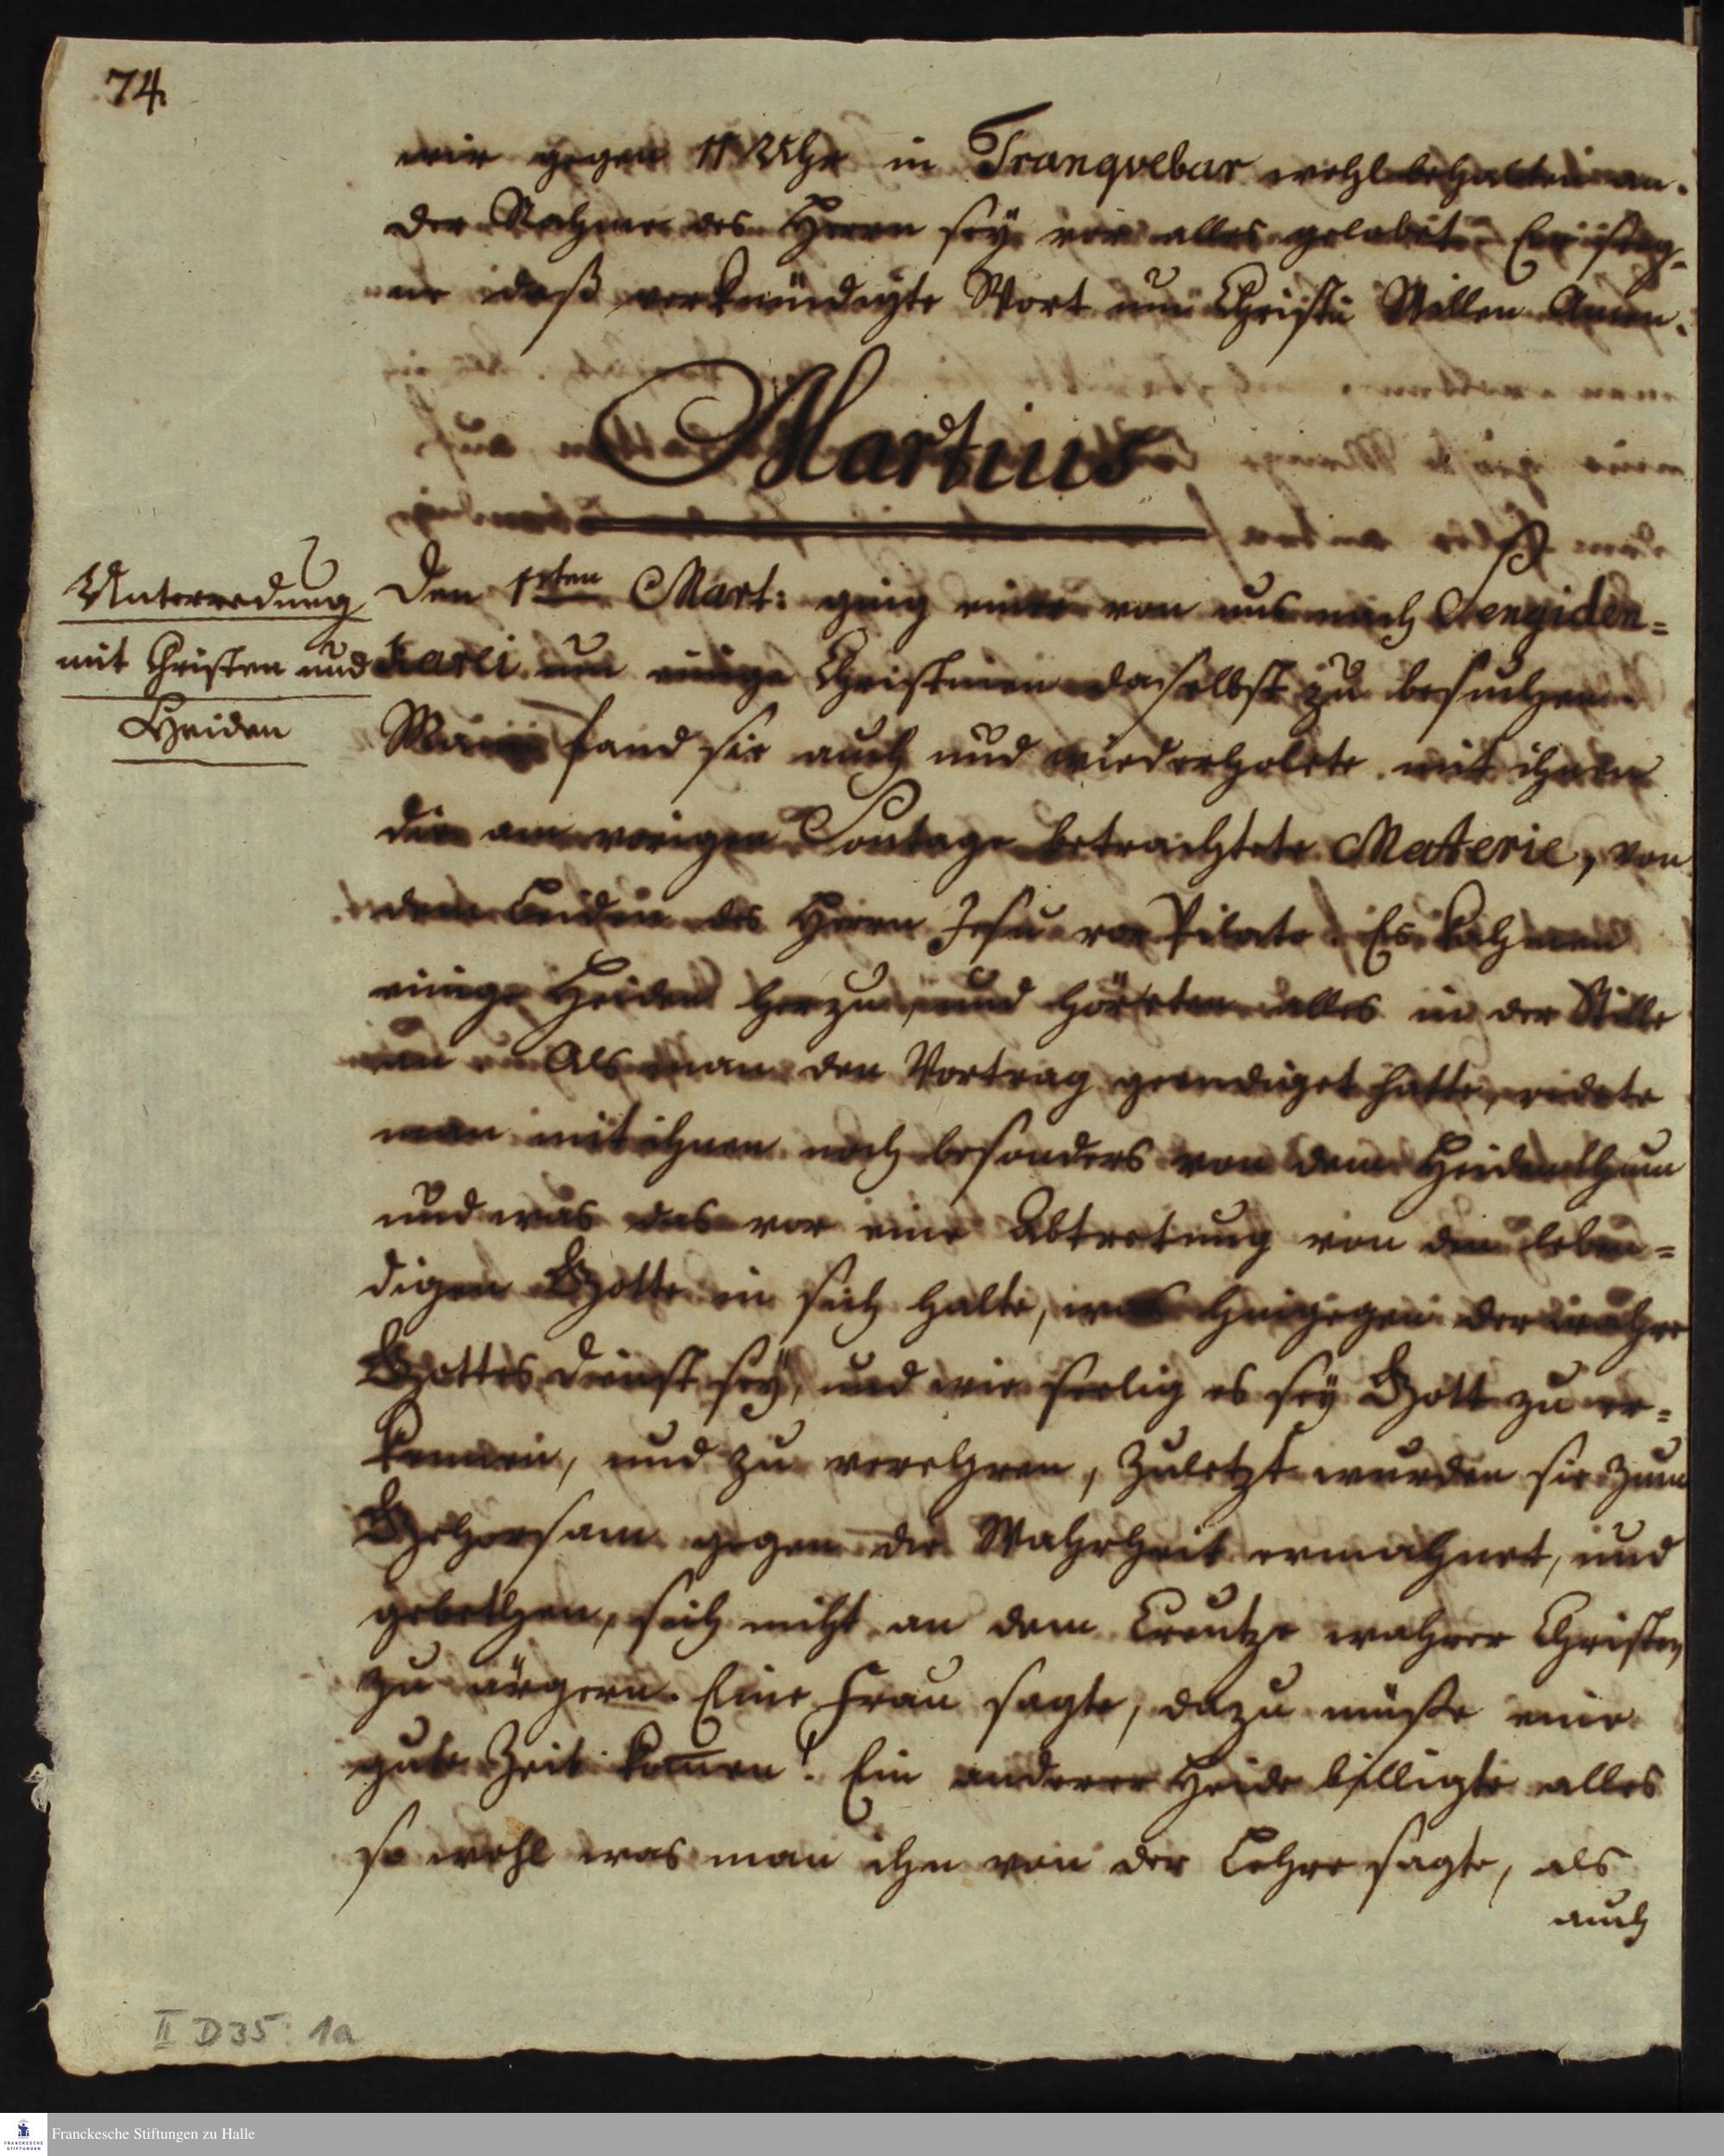 74.
wir gegen 11 Uhr in Tranqvebar wohl behalten an.
Der Nahme des Herrn sey vor alles gelobet. Er seeg-
ne daß verkündigte Wort um Christi Willen Amen.
Martius
Unterredung
mit Christen und
Heiden
Den 1sten Mart: ging einer von uns nach Sengiden=
karei um einige Christinnen daselbst zu besuchen.
Man fand sie auch und wiederholete mit ihnen
die am vorigen Sontage betrachtete Materie, von
dem Leiden des Herrn Jesu vor Pilato. Es kahmen
einige Heiden herzu, und hörten alles in der Stille
an. Als man den Vortrag geendiget hatte, redete
man mit ihnen noch besonders von dem Heidenthum
und was das vor eine Abtretung von den leben=
digen Gotte in sich halte, was hingegen der wahre
Gottesdienst sey, und wie seelig es sey Gott zu er=
kennen, und zu verehren, Zuletzt wurden sie zum
Gehorsam gegen die Wahrheit ermahnet, und
gebethen, sich nicht an dem Creutze wahrer Christen
zu ärgern. Eine Frau sagte, dazu müste eine
gute Zeit kom̅en! Ein anderer Heide billigte alles
so wohl was man ihn von der Lehre sagte, als
auch
II D 35: 1a
Franckesche Stiftungen zu Halle
FRANCKESCHE
STIFTUNGEN